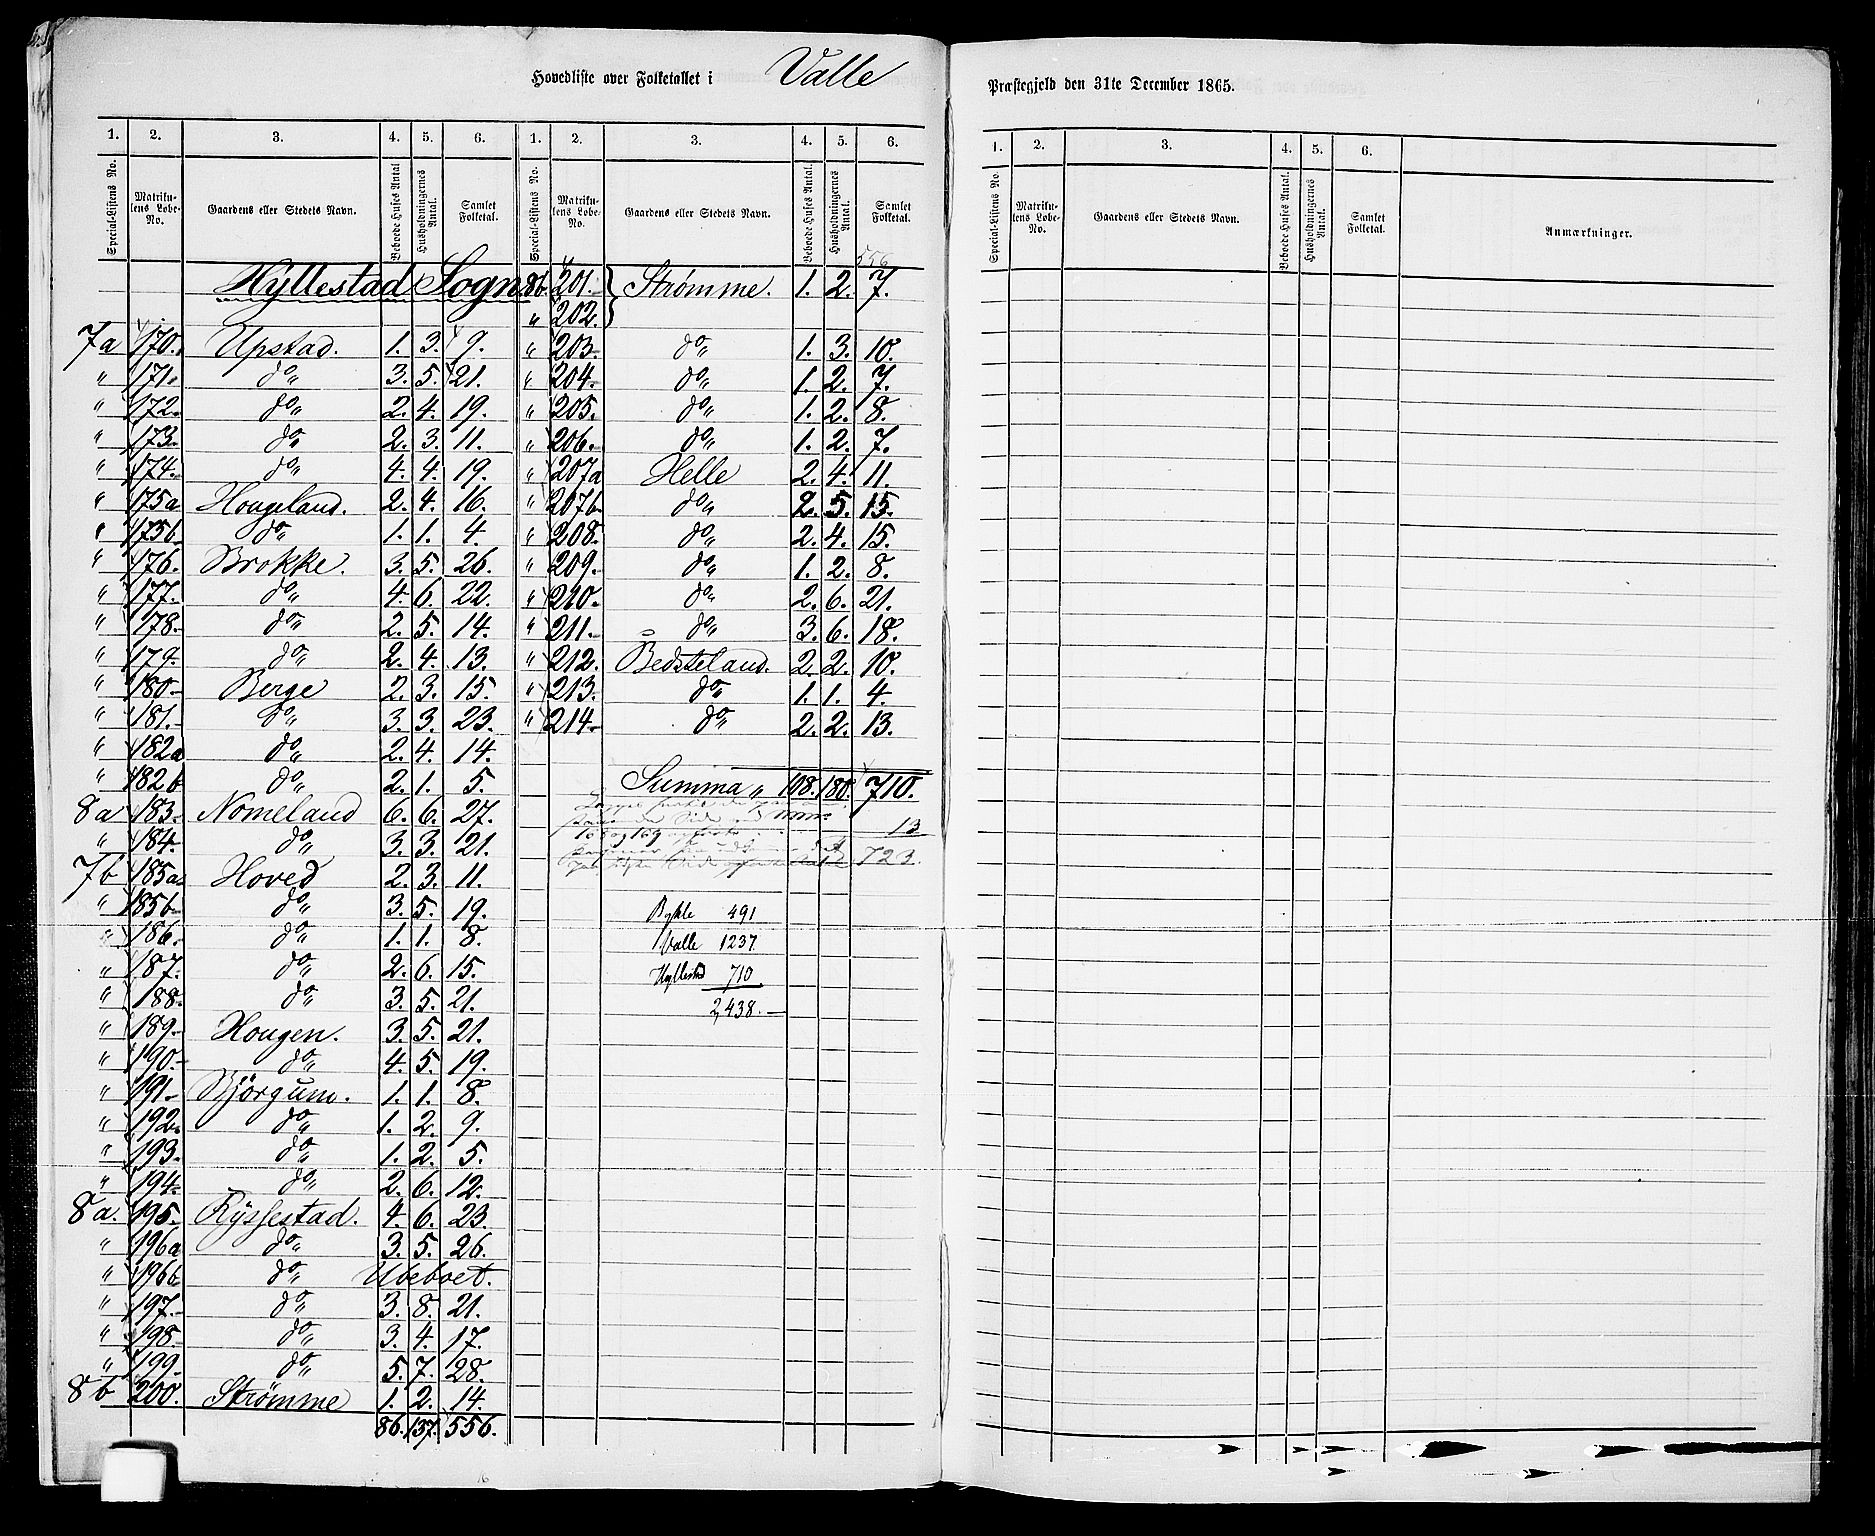 Hovedliste over Folketallet i Valle Præstegjeld den 31te December 1865.
1. 2. 3. 4. 5. 6. 1. 2. 3. 4. 5. 6.
Special-Listens No. Matrikulens Løbe-No. Gaardens eller Stedets Navn. Beboede Huses Antal Husholdningernes Antal. Samlet Folketal. Special-Listens No. Matrikulens Løbe-No. Gaardens eller Stedets Navn. Beboede Huses Antal. Husholdningernes Antal. Samlet Folketal.
Hyllestad Sogn
7a 170. Upstad. 1. 3. 9.
" 171. do " 3. 5. 21.
" 172. do " 2. 4. 19.
" 173. do " 2. 3. 11.
" 174. do " 4. 4. 19.
" 175a Hougeland. 2. 4. 16.
" 175b do " 1. 1. 4.
" 176. Brokke. 3. 5. 26.
" 177. do " 4. 6. 22.
" 178. do " 2. 5. 14.
" 179. do " 2. 4. 13.
" 180. Berge 2. 3. 15.
" 181. do " 3. 3. 23.
" 182a do " 2. 4. 14.
" 182b do " 2. 1. 5.
8a 183. Nomeland 6. 6. 27.
" 184. do " 3. 3. 21.
7b 185a Hoved 2. 3. 11.
" 185b do " 3. 5. 19.
" 186. do " 1. 1. 8.
" 187. do " 2. 6. 15.
" 188. do " 3. 5. 21.
" 189. Hougen. 3. 5. 21.
" 190. do " 4. 5. 19.
" 191. Björgum. 1. 1. 8.
" 192. do " 1. 2. 9.
" 193. do " 1. 2. 5.
" 194. do " 2. 6. 12.
8a. 195. Ryssestad. 4. 6. 23.
" 196a do " 3. 5. 26.
" 196b do " Ubeboet.
" 197. do " 3. 8. 21.
" 198. do " 3. 4. 17.
" 199. do " 5. 7. 28.
8b 200. Strømme 1. 2. 14.
86. 137. 556.
16
556
8b. 201. Strømme. 1. 2. 7.
" 202.
" 203. do " 1. 3. 10.
" 204. do " 1. 2. 7.
" 205. do " 1. 2. 8.
" 206. do " 1. 2. 7.
" 207a Helle 2. 4. 11.
" 207b do " 2. 5. 15.
" 208. do " 2. 4. 15.
" 209. do " 1. 2. 8.
" 210. do " 2. 6. 21.
" 211. do " 3. 6. 18.
" 212. Bedsteland. 2. 2. 10.
" 213. do " 1. 1. 4.
" 214. do " 2. 2. 13.
Summa " 108. 180. 710.
168 og 169 13
723.
Bykle 491
Valle 1237
Hyllestad 710
2,438.
1. 2. 3. 4. 5. 6.
Special-Listens No. Matrikulens Løbe-No. Gaardens eller Stedets Navn. Beboede Huses Antal. Husholdningernes Antal. Samlet Folketal. Anmærkninger.